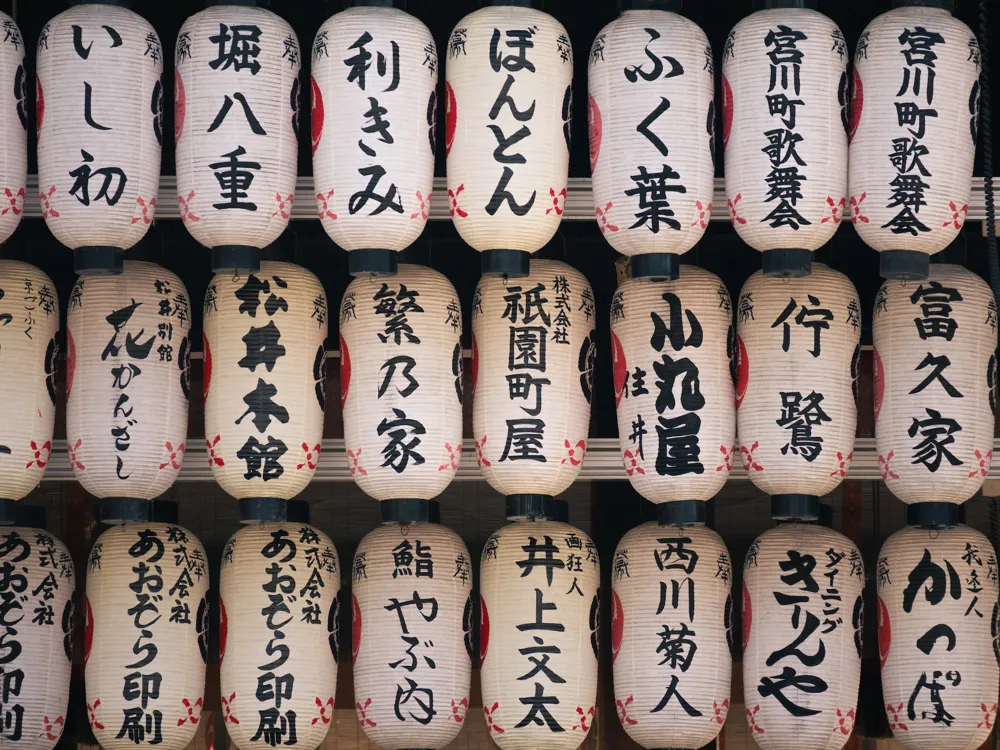 いし初
堀八重
利きみ
ぼんとん
ふく葉
宮川町歌舞会
宮川町歌舞会
京つづふく
松井別館
花かんざし
松井本館
繁乃家
株式会社
祇園町屋
小丸屋
住井
佇鷺
富久家
株式会社
あおぞら印刷
株式会社
あおぞら印刷
株式会社
あおぞら印刷
鮨やぶ内
画狂人
井上文太
西川菊人
ダイニング
きりんや
我逢人
かつぱ